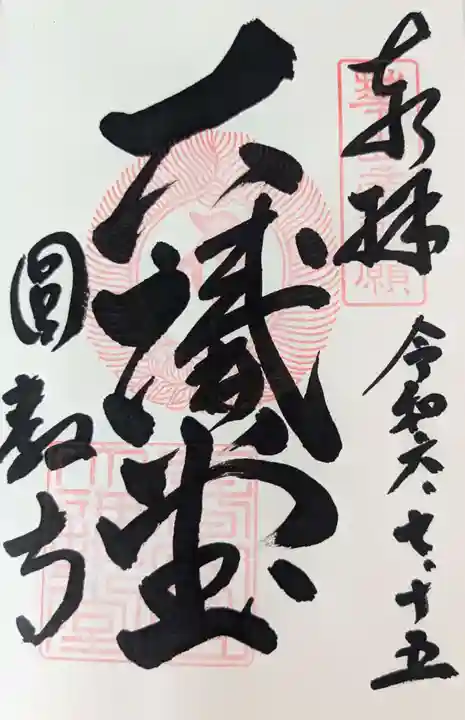 奉拝
令和六、七、十五
大講堂
圓教寺